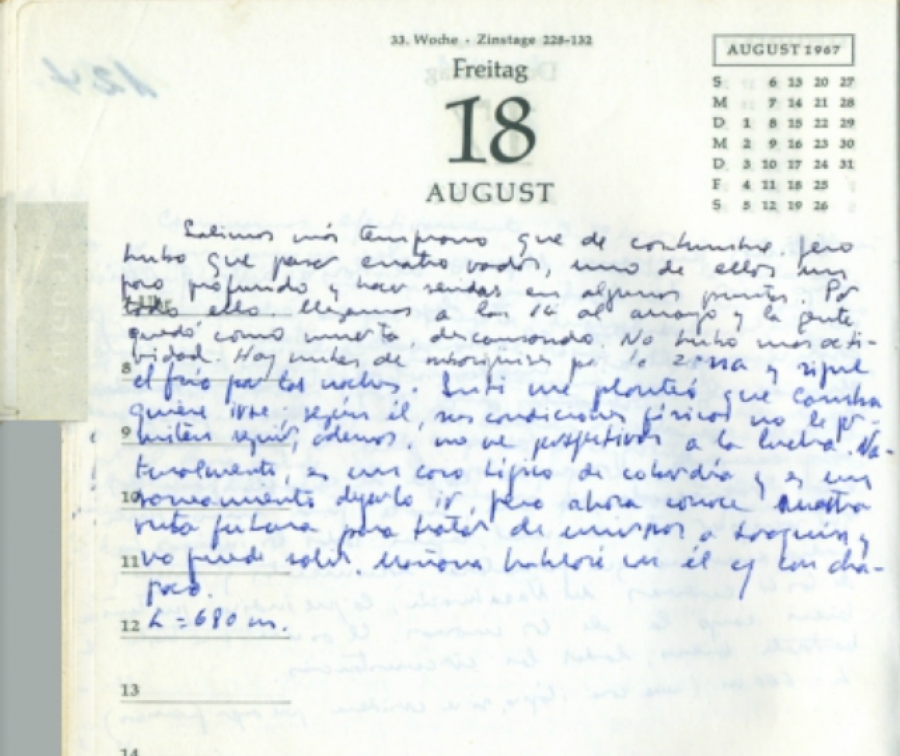 33. Woche - Zinstage 228-132
Freitag
18
AUGUST
AUGUST 1967
S 6 13 20 27
M 7 14 21 28
D 1 8 15 22 29
M 2 9 16 23 30
D 3 10 17 24 31
F 4 11 18 25
S 5 12 19 26
Salimos más temprano que de costumbre, pero
hubo que pasar cuatro vados, uno de ellos un
poco profundo y hacer sendas en algunos puntos. Por
todo ello, llegamos a las al arroyo y la gente
quedó como muerta, descansando. No hubo más acti-
vidad. Hay nubes de en la zona y sigue
el frío por las noches. Inti me planteó que Camba
quiere irse; según él, sus condiciones físicas no le per-
miten seguir, además, no ve perspectivas a la lucha. Na-
turalmente, es un caso típico de cobardía y es un
saneamiento dejarlo ir, pero ahora conoce nuestra
ruta futura para tratar de unirnos a Joaquín y
no puede salir. Mañana hablaré con él y con Cha-
paco.
h = 680 m.
8
9
10
11
12
13
14